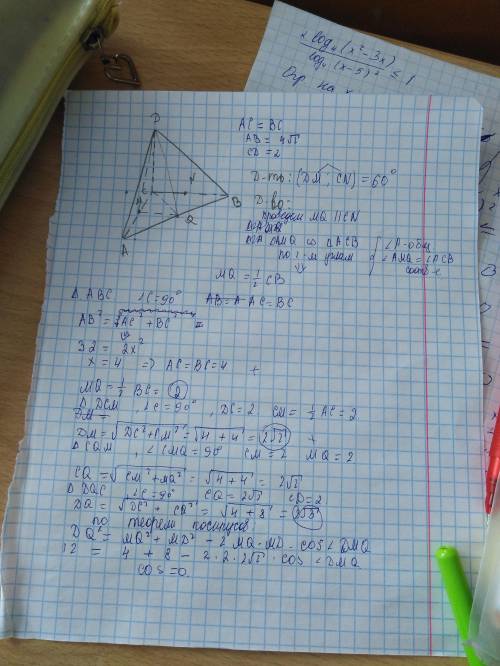 log₄(x²-3x)
log₄(x-5)² ≤ 1
D
N
C
B
M
Q
A
AC = BC
AB = 4√2
CD = 2
D-ть: (DM ; CN) = 60°
D-во:
проведем MQ || CN
△AMQ ∞ △ACB
по 2-м углам
∠A-общ
∠AMQ = ∠ACB
соотв-е
MQ = 1/2 CB
△ ABC ∠C=90° AC=BC
AB² = AC² + BC²
32 = 2x²
x = 4 => AC=BC=4 +
MQ = 1/2 BC = 2
△ DCM , ∠C = 90° , DC=2 CM = 1/2 AC = 2
DM =
DM = √DC²+CM² = √4+4 = 2√2 +
△ CQM , ∠CMQ = 90° CM = 2 MQ = 2
CQ = √CM²+MQ² = √4+4 = 2√2
△ DQC ∠C=90° CQ = 2√2 CD=2
DQ = √DC² + CQ² = √4+8 = 2√3
по теорем косинусов
DQ² = MQ² + MD² - 2 MQ·MD·COS∠DMQ
12 = 4 + 8 - 2·2·2√2 · COS ∠DMQ
COS = 0